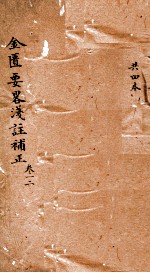 共四本
金匱要畧淺註補正 卷一二